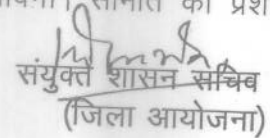 समिति की प्रश
संयुक्त शासन सचिव
(जिला आयोजना)